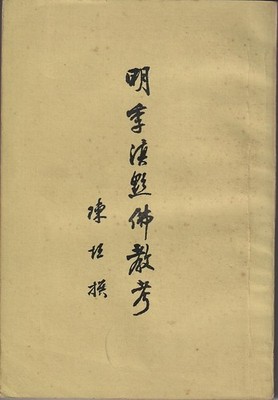 明季滇黔佛教考
陳垣撰